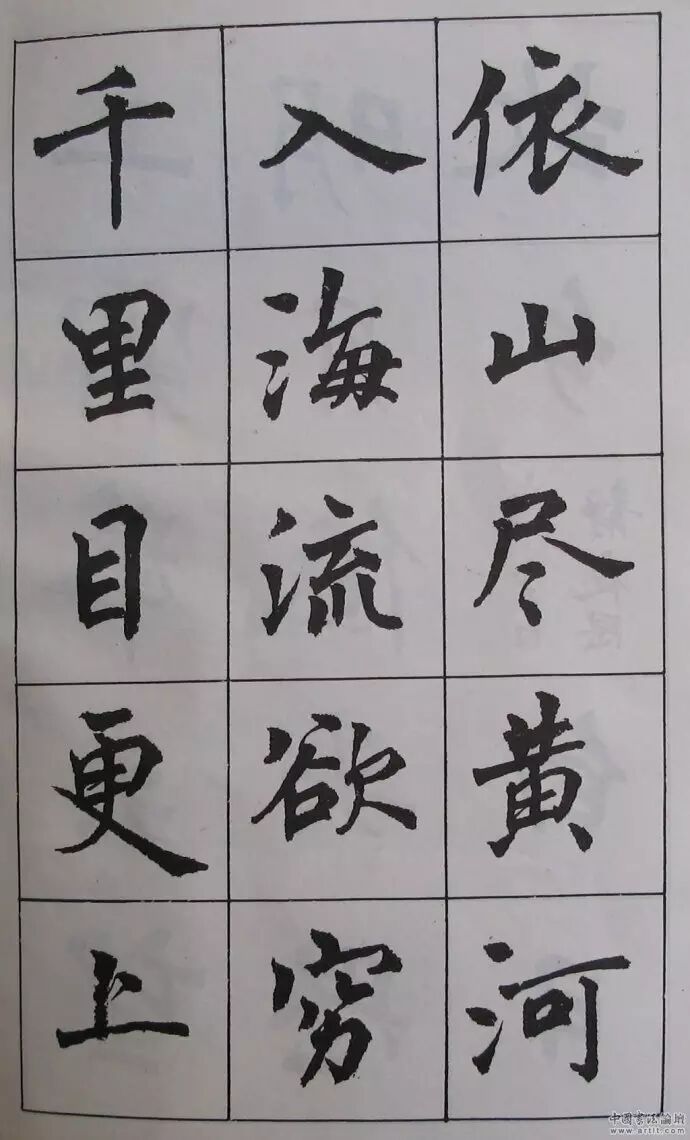 依山尽黄河
入海流欲穷
千里目更上
中国书法论坛
www.artit.com